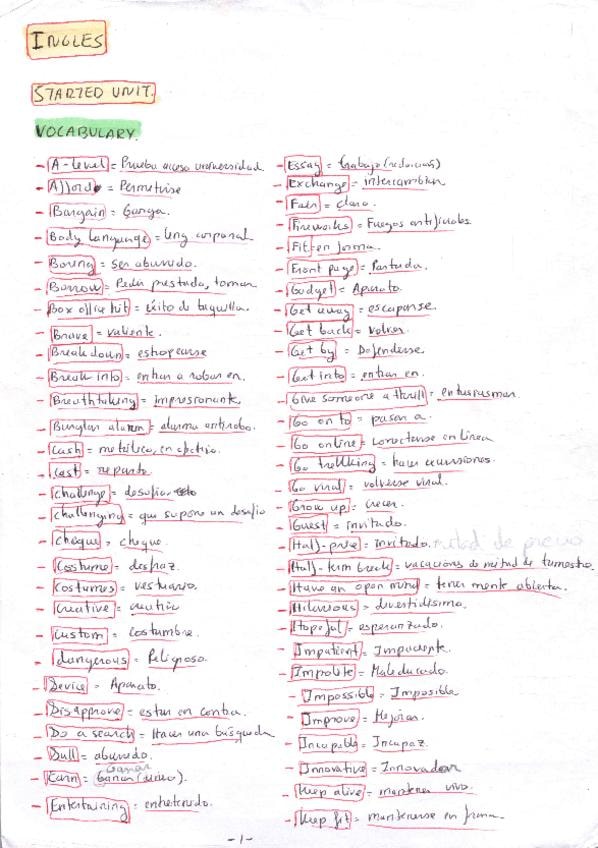 INGLES
STARTED UNIT.
VOCABULARY.
- A-level = Prueba acceso universidad
- Afford = Permitirse
- Bargain = Ganga.
- Body language = leng corporal
- Boring = ser aburrido.
- Borrow = Pedir prestado, tomar
- Box office hit = éxito de taquilla.
- Brave = valiente.
- Break down = estropearse
- Break into = entrar a robar en.
- Breathtaking = impresionante
- Burglar alarm = alarma antirrobo.
- Cash = metálico, en efectivo.
- Cast = reparto.
- Challenge = desafio
- Challenging = que supone un desafio
- cheque = cheque.
- Costume = disfraz.
- Costumes = vestuario.
- Creative = creativo
- Custom = costumbre.
- dangerous = Peligroso.
- Device = Aparato.
- Disapprove = estar en contra.
- Do a search = Hacer una búsqueda
- Dull = aburrido.
- Earn = ganar (dinero).
- Entertaining = entretenido.
- Essay = trabajo (redaccion)
- Exchange = intercambiar
- Fair = claro.
- Fireworks = Fuegos artificiales
- Fit = en forma.
- Front page = Portada.
- Gadget = Aparato.
- Get away = escaparse.
- Get back = volver
- Get by = Defenderse.
- Get into = entrar en.
- Give someone a thrill = entusiasmar.
- Go on to = pasar a.
- Go online = conectarse en linea
- Go trekking = hacer excursiones.
- Go viral = volverse viral.
- Grow up = crecer.
- Guest = invitado.
- Half-price = invitado. mitad de precio
- Half-term break = vacaciones de mitad de trimestre.
- Have an open mind = tener mente abierta.
- Hilarious = divertidisimo.
- Hopeful = esperanzado.
- Impatient = Impaciente.
- Impolite = Maleducado.
- Impossible = Imposible
- Improve = Mejorar.
- Incapable = Incapaz.
- Innovative = Innovador
- Keep alive = mantener vivo.
- Keep fit = mantenerse en forma
-1-